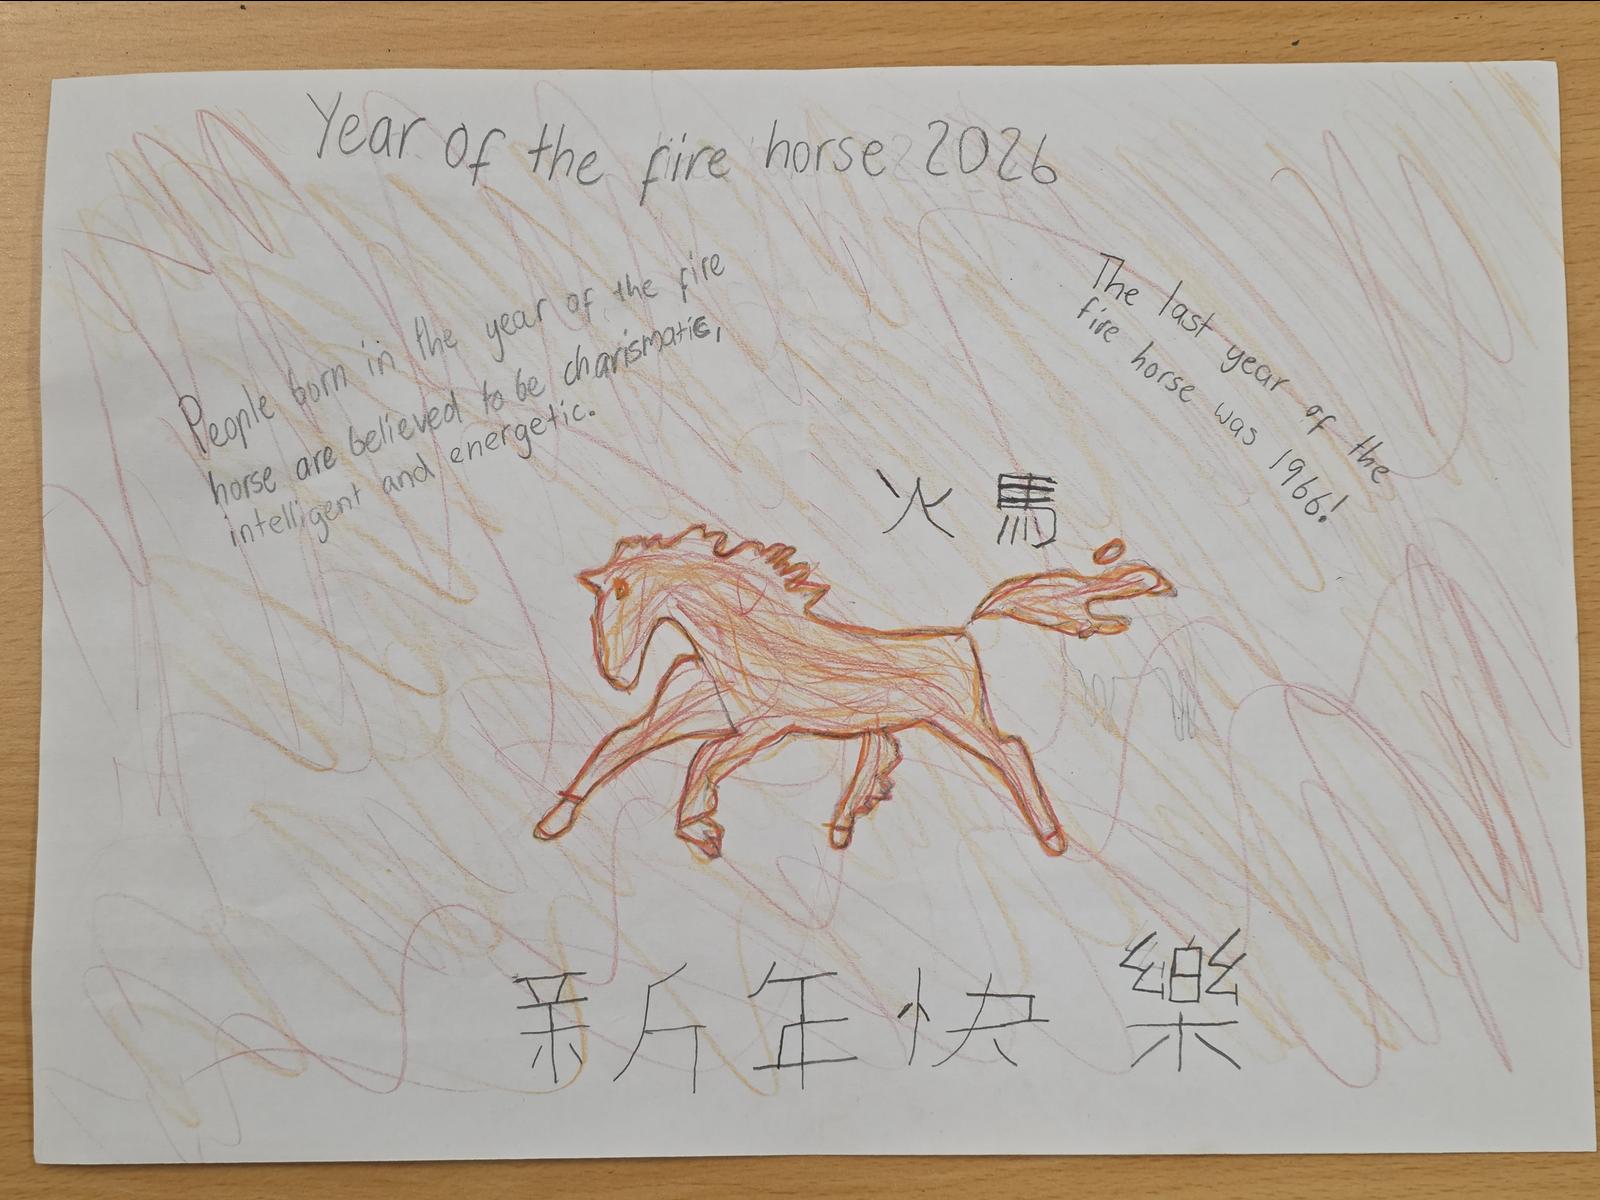 Year of the fire horse 2026
People born in the year of the fire
horse are believed to be charismatic,
intelligent and energetic.
The last year of the
fire horse was 1966!
火馬
新年快樂